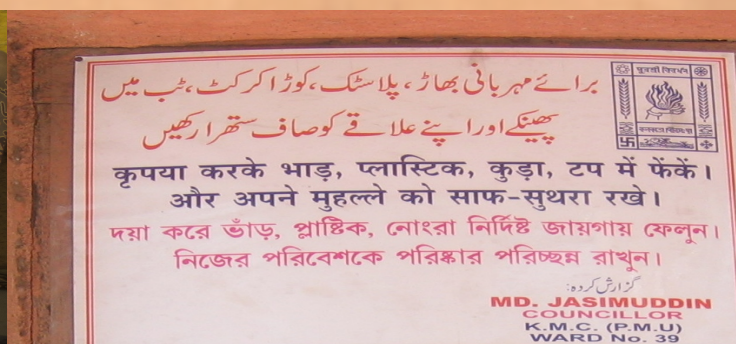 برائے مہربانی بھاڑ، پلاسٹک، کوڑا کرکٹ، ٹب میں
پھینکے اور اپنے علاقے کو صاف ستھرا رکھیں
कृपया करके भाड़, प्लास्टिक, कुड़ा, टप में फेंकें।
और अपने मुहल्ले को साफ-सुथरा रखे।
দয়া করে ভাঁড়, প্লাষ্টিক, নোংরা নির্দিষ্ট জায়গায় ফেলুন।
নিজের পরিবেশকে পরিষ্কার পরিচ্ছন্ন রাখুন।
گزارش کردہ:
MD. JASIMUDDIN
COUNCILLOR
K.M.C. (P.M.U)
WARD No. 39